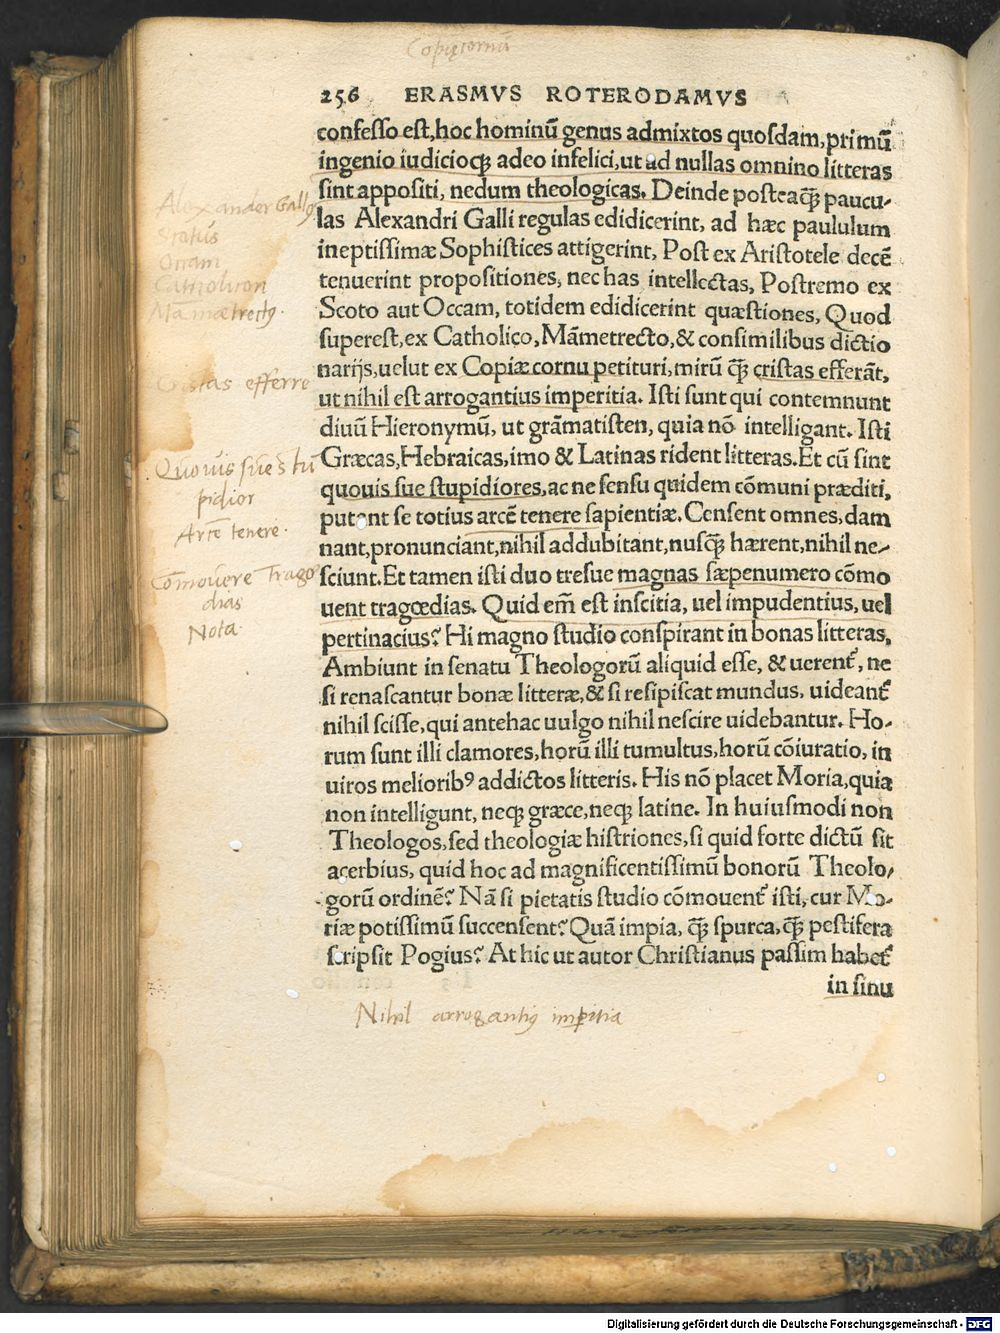 Copiæcornu
256 ERASMVS ROTERODAMVS
confesso est, hoc hominū genus admixtos quosdam, primū
ingenio iudicioqꝫ adeo infelici, ut ad nullas omnino litteras
sint appositi, nedum theologicas. Deinde posteaqꝫ̃ paucu-
las Alexandri Galli regulas edidicerint, ad hæc paululum
ineptissimæ Sophistices attigerint, Post ex Aristotele decē
tenuerint propositiones, nec has intellectas, Postremo ex
Scoto aut Occam, totidem edidicerint quæstiones, Quod
superest, ex Catholico, Māmetrecto, & consimilibus dictio
narijs, uelut ex Copiæcornu petituri, mirū qꝫ̃ cristas efferāt,
ut nihil est arrogantius imperitia. Isti sunt qui contemnunt
diuū Hieronymū, ut grāmatisten, quia nō intelligant. Isti
Græcas, Hebraicas, imo & Latinas rident litteras. Et cū sint
quouis sue stupidiores, ac ne sensu quidem cōmuni præditi,
putant se totius arcē tenere sapientiæ. Censent omnes, dam
nant, pronunciant, nihil addubitant, nusqꝫ̃ hærent, nihil ne-
sciunt. Et tamen isti duo tresue magnas sæpenumero cōmo
uent tragœdias. Quid em̄ est inscitia, uel impudentius, uel
pertinacius? Hi magno studio conspirant in bonas litteras,
Ambiunt in senatu Theologorū aliquid esse, & uerent᷑, ne
si renascantur bonæ litteræ, & si resipiscat mundus, uideant᷑
nihil scisse, qui antehac uulgo nihil nescire uidebantur. Ho-
rum sunt illi clamores, horū illi tumultus, horū cōiuratio, in
uiros meliorib⁹ addictos litteris. His nō placet Moria, quia
non intelligunt, neqꝫ græce, neqꝫ latine. In huiusmodi non
Theologos, sed theologiæ histriones, si quid forte dictū sit
acerbius, quid hoc ad magnificentissimū bonorū Theolo-
gorū ordinē? Nā si pietatis studio cōmouent᷑ isti, cur Mo-
riæ potissimū succensent? Quā impia, qꝫ̃ spurca, qꝫ̃ pestifera
scripsit Pogius? At hic ut autor Christianus passim habet᷑
in sinu
Alexander Gallus
Occam
Catholicon
Mamætrectꝰ.
Cristas efferre
Quouis sue stu
pidior
Arcē tenere.
Cōmouere Trago
dias
Nota.
Nihil arrogantiꝰ imꝑitia
Digitalisierung gefördert durch die Deutsche Forschungsgemeinschaft - DFG